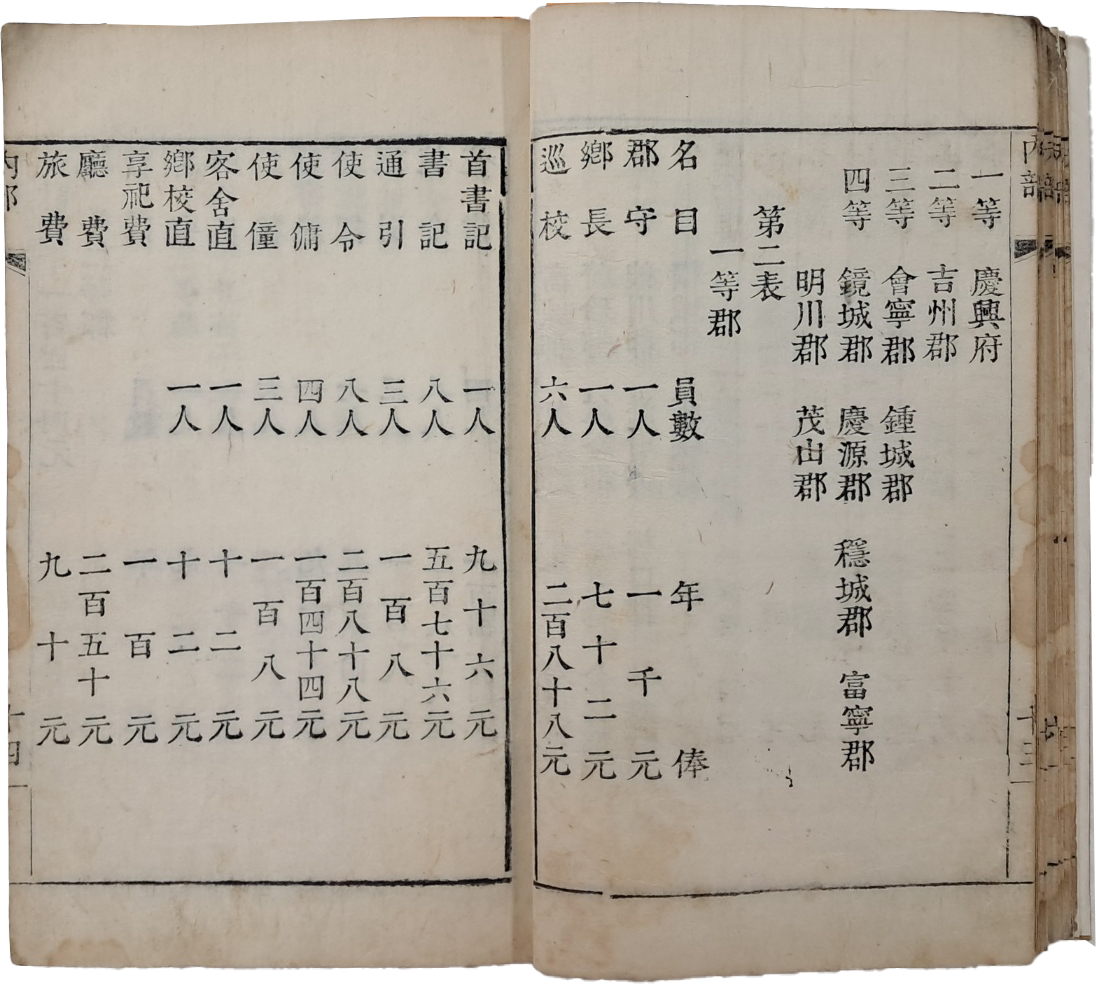 內部
十三
一等 慶興府
二等 吉州郡
三等 會寧郡 鍾城郡
四等 鏡城郡 慶源郡 穩城郡 富寧郡
明川郡 茂山郡
第二表
一等郡
名目 員數 年俸
郡守 一人 一千元
鄉長 一人 七十二元
巡校 六人 二百八十八元
首書記 一人 九十六元
書記 八人 五百七十六元
通引 三人 一百八元
使令 八人 二百八十八元
使傭 四人 一百四十四元
使僮 三人 一百八元
客舍直 一人 十二元
鄉校直 一人 十二元
享祀費 一百元
廳費 二百五十元
旅費 九十元
內部
十四